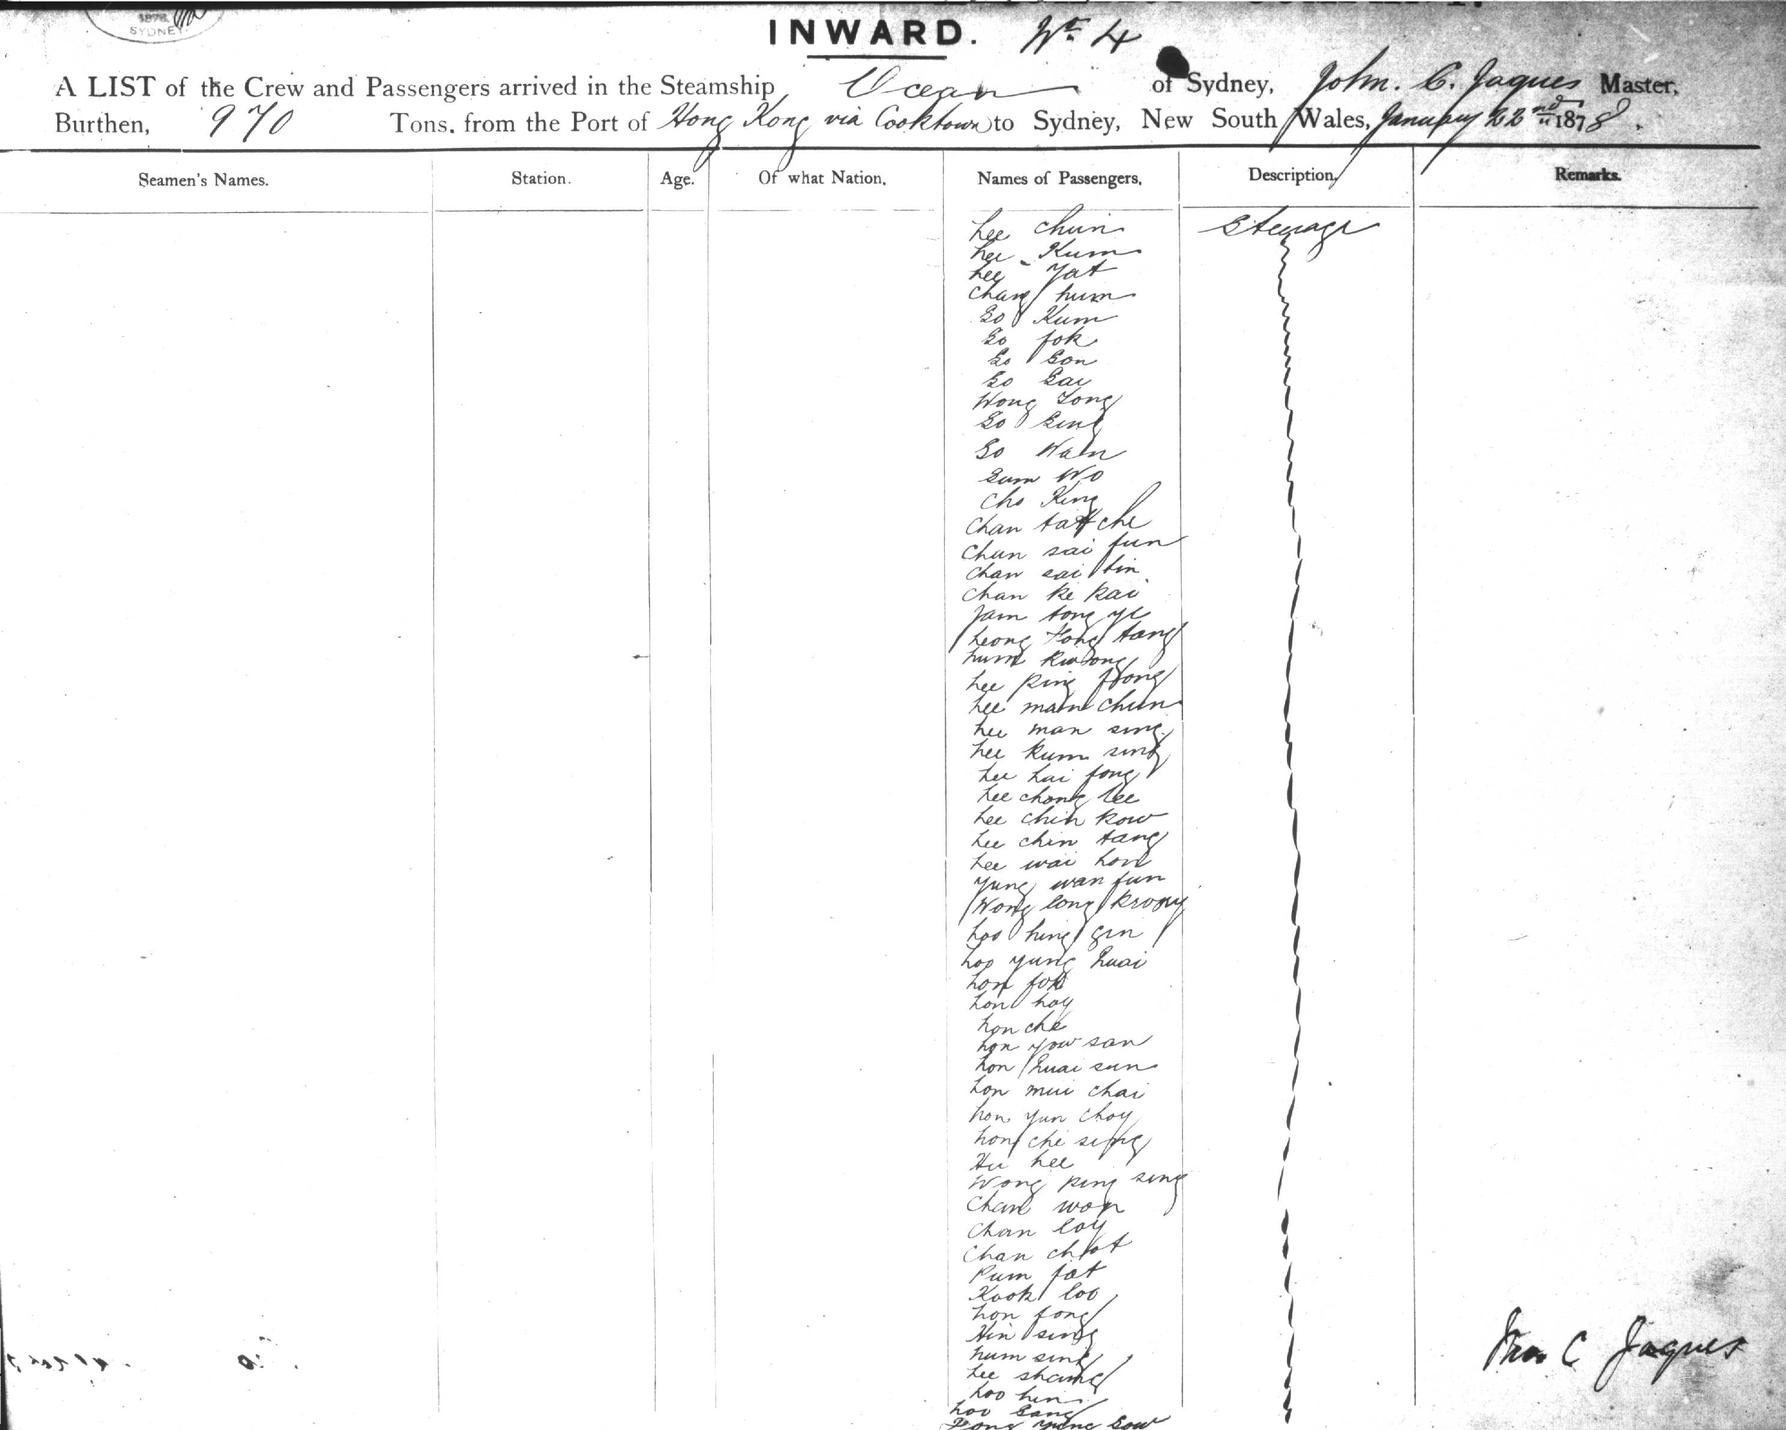 1878
SYDNEY
INWARD. No 4
A LIST of the Crew and Passengers arrived in the Steamship Ocean of Sydney, John. C. Jaques Master,
Burthen, 970 Tons. from the Port of Hong Kong via Cooktown to Sydney, New South Wales, January 22nd 1878.
Seamen's Names. Station. Age. Of what Nation. Names of Passengers. Description. Remarks.
Lee Chun Steerage
Lee Kum
Lee Yat
Chang Lum
So Kum
So fok
So Son
So Sai
Wong Tong
So Sing
So Wan
Sum Wo
Cho King
Chan tat che
Chun sai fun
Chan sai tin
Chan ke kai
Yam tong ye
Leong Tong tang
Lum kwong
Lee ping fong
Lee man Chun
Lee man sing
Lee kum sing
Lee hai fong
Lee chong Lee
Lee chin kow
Lee chin tang
Lee wai hon
Yung wan fun
Wong long
Loo hing gin
Loo yung huai
Lon fok
Lon hoy
Lon che
Lon yow san
Lon huai sun
Lon mui chai
Lon yun choy
Lon che sing
Hee
Wong ping sing
Chan won
Chan loy
Chan chot
Kum fat
Kook loo
Lon fong
Hin sing
Lum sing
Lee shang
Loo hin
Loo Sang
Jno. C Jaques